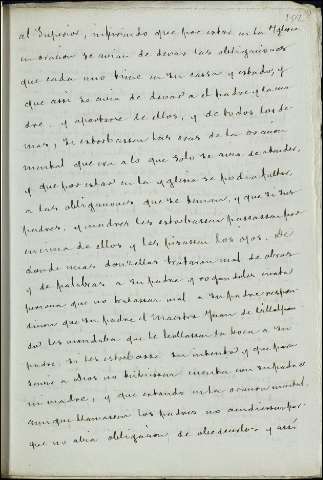 al Superior, infiriendo que por estar en la Yglesia
en oracion se avian de dexar las obligaciones
que cada uno tiene en su cassa y estado, y
que assi se avia de dexar a el padre y la ma
dre. y apartarse de ellos, y de todos los de
mas, si estorbassen las oras de la oracion
mental que era a lo que solo se avia de atender,
y que por estar en la yglesia se podia faltar
a las obligaciones que se tenian, y que si sus
padres, y madres les estorbassen passassen por
encima de ellos y les pisassen los ojos. De
donde unas donzellas trataron mal de obras
y de palabras a su padre y rogandoles cierta
persona que no tratassen mal a su padre respon
dieron que su padre el Maestro Juan de Villalpan
do les mandaba que le hollassen la boca a su
padre, si les estorbasse su intento y que para
servir a dios no hubiessen cuenta con su padre
ni madre, y que estando en la oracion mental,
aunque llamassen los padres no acudiessen por
que no abia obligacion de obedecerlos y assi